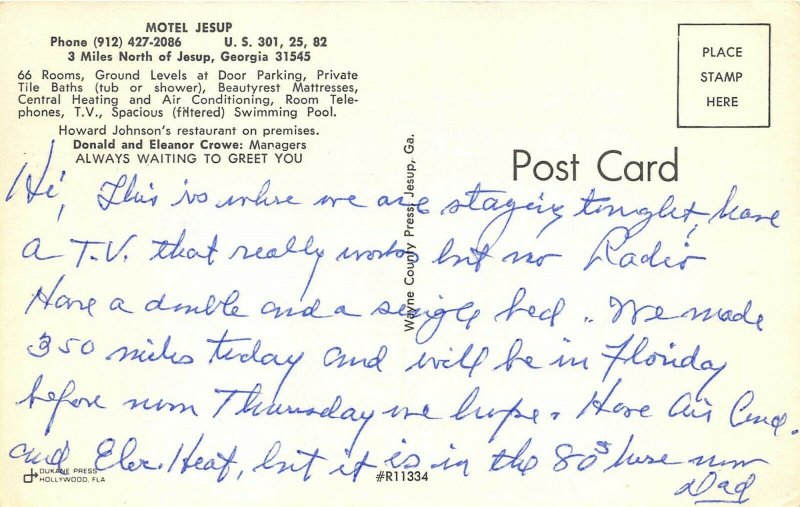 MOTEL JESUP
Phone (912) 427-2086 U. S. 301, 25, 82
3 Miles North of Jesup, Georgia 31545
66 Rooms, Ground Levels at Door Parking, Private
Tile Baths (tub or shower), Beautyrest Mattresses,
Central Heating and Air Conditioning, Room Tele-
phones, T.V., Spacious (filtered) Swimming Pool.
Howard Johnson's restaurant on premises.
Donald and Eleanor Crowe: Managers
ALWAYS WAITING TO GREET YOU
PLACE
STAMP
HERE
Post Card
Wayne County Press, Jesup, Ga.
Hi, This is where we are staying tonight, have
a T.V. that really works but no Radio
Have a double and a single bed .. We made
350 miles today and will be in Florida
before noon Thursday we hope. Have Air Cond.
and Elec. Heat, but it is in the 80s here now
Dad
DUKANE PRESS
HOLLYWOOD, FLA
#R11334